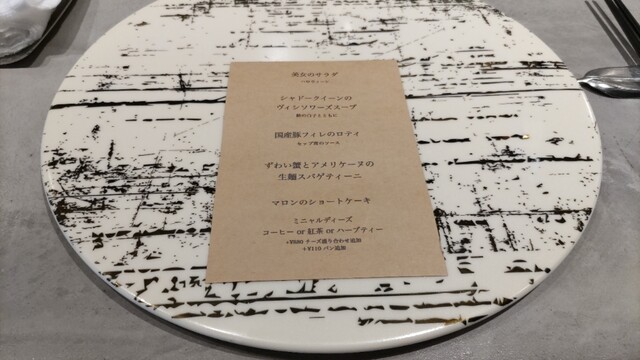 美女のサラダ
シャドークイーンの
ヴィシソワーズスープ
国産豚フィレのロティ
ずわい蟹とアメリケーヌの
生麺スパゲティーニ
マロンのショートケーキ
ミニャルディーズ
コーヒー or 紅茶 or ハーブティー
+¥680 チーズ盛り合わせ追加
+¥110 パン追加